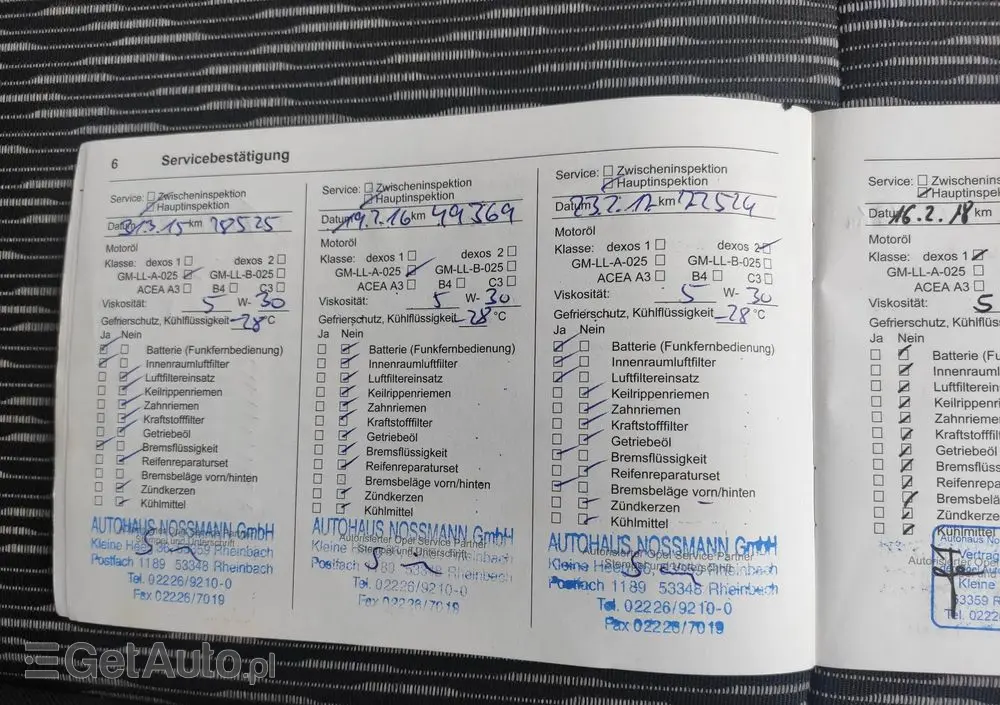 6 Servicebestätigung
Service: Zwischeninspektion
Hauptinspektion
Datum 31.3.15 km 28525
Motoröl
Klasse: dexos 1 dexos 2
GM-LL-A-025 GM-LL-B-025
ACEA A3 B4 C3
Viskosität: 5 W- 30
Gefrierschutz, Kühlflüssigkeit -28 °C
Ja Nein
Batterie (Funkfernbedienung)
Innenraumluftfilter
Luftfiltereinsatz
Keilrippenriemen
Zahnriemen
Kraftstofffilter
Getriebeöl
Bremsflüssigkeit
Reifenreparaturset
Bremsbeläge vorn/hinten
Zündkerzen
Kühlmittel
AUTOHAUS NOSSMANN GmbH
Stempel und Unterschrift
Kleine Heeg 53359 Rheinbach
Postfach 1189 53348 Rheinbach
Tel. 02226/9210-0
Fax 02226/7019
Service: Zwischeninspektion
Hauptinspektion
Datum 19.2.16 km 49369
Motoröl
Klasse: dexos 1 dexos 2
GM-LL-A-025 GM-LL-B-025
ACEA A3 B4 C3
Viskosität: 5 W- 30
Gefrierschutz, Kühlflüssigkeit -28 °C
Ja Nein
Batterie (Funkfernbedienung)
Innenraumluftfilter
Luftfiltereinsatz
Keilrippenriemen
Zahnriemen
Kraftstofffilter
Getriebeöl
Bremsflüssigkeit
Reifenreparaturset
Bremsbeläge vorn/hinten
Zündkerzen
Kühlmittel
AUTOHAUS NOSSMANN GmbH
Autorisierter Opel Service Partner
Stempel und Unterschrift
Kleine Rheinbach
Postfach 1189 53348 Rheinbach
Tel. 02226/9210-0
Fax 02226/7019
Service: Zwischeninspektion
Hauptinspektion
Datum 23.2.17 km 77524
Motoröl
Klasse: dexos 1 dexos 2
GM-LL-A-025 GM-LL-B-025
ACEA A3 B4 C3
Viskosität: 5 W- 30
Gefrierschutz, Kühlflüssigkeit -28 °C
Ja Nein
Batterie (Funkfernbedienung)
Innenraumluftfilter
Luftfiltereinsatz
Keilrippenriemen
Zahnriemen
Kraftstofffilter
Getriebeöl
Bremsflüssigkeit
Reifenreparaturset
Bremsbeläge vorn/hinten
Zündkerzen
Kühlmittel
AUTOHAUS NOSSMANN GmbH
Autorisierter Opel Service Partner
Stempel und Unterschrift
Kleine Rheinbach
Postfach 1189 53348 Rheinbach
Tel. 02226/9210-0
Fax 02226/7019
Service: Zwischeninspe
Hauptinspek
Datum 16.2.18 km
Motoröl
Klasse: dexos 1
GM-LL-A-025
ACEA A3
Viskosität: 5
Gefrierschutz, Kühlflüss
Ja Nein
Batterie (Fu
Innenrauml
Luftfilterein
Keilrippenri
Zahnriemen
Kraftstofffil
Getriebeöl
Bremsflüss
Reifenrepa
Bremsbelä
Zündkerze
Kühlmittel
Autohaus No
Autorisierter Opel
Vertrag
Kleine
53359 R
Tel. 0222
GetAuto.pl